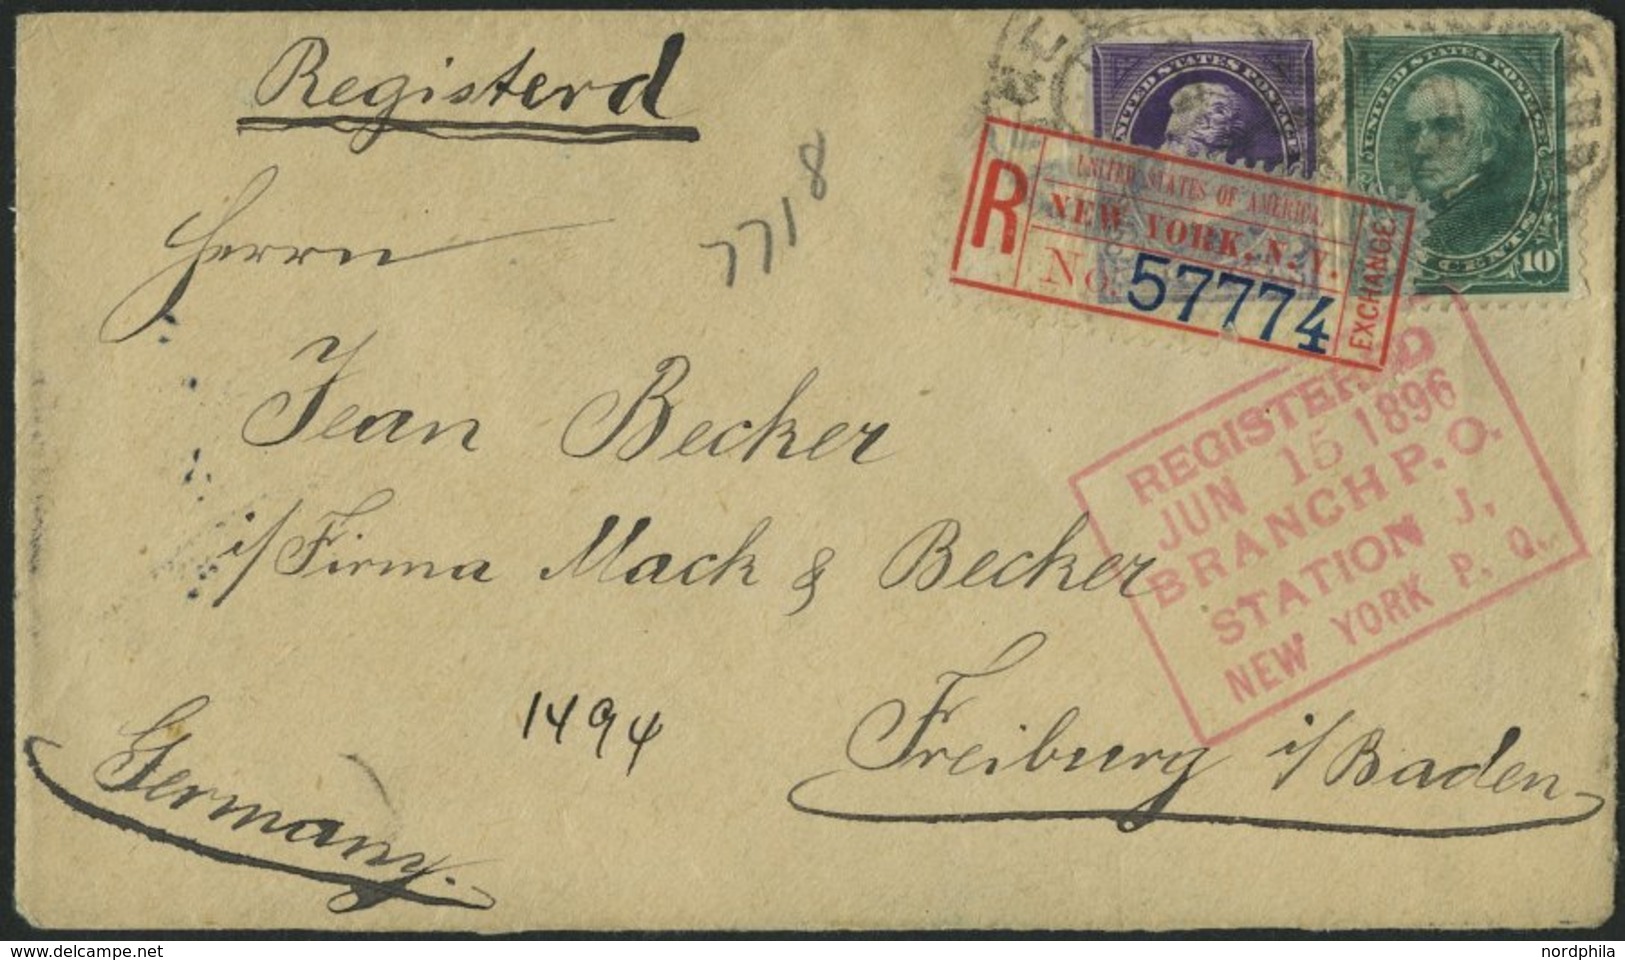 Registerd
7718
UNITED STATES POSTAGE
UNITED STATES POSTAGE
CENTS 10
R
UNITED STATES OF AMERICA.
NEW YORK, N. Y.
No. 57774
EXCHANGE
Herrn
Jean Becker
i/Firma Mack & Becker
Freiburg i/Baden
Germany.
1494
REGISTERED
JUN 15 1896
BRANCH P. O.
STATION J,
NEW YORK P. O.
nordphila
(c)delcampe.net